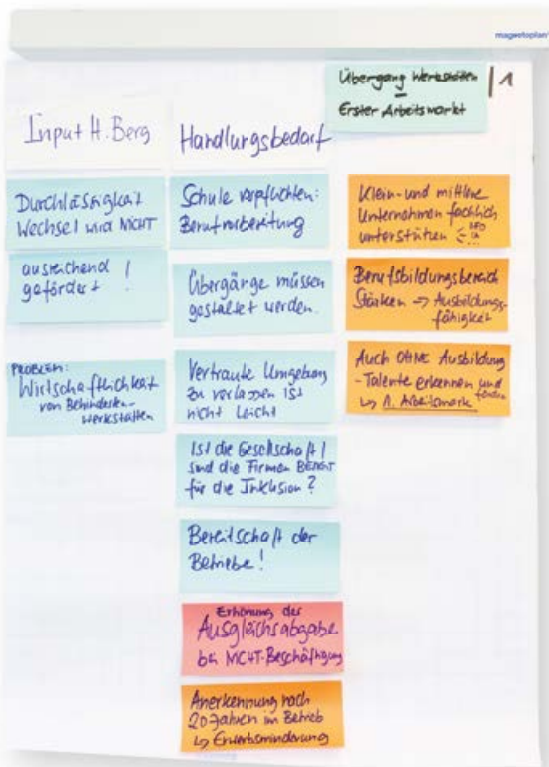 magnetoplan
Übergang Werkstätten / 1
–
Erster Arbeitsmarkt
Input H. Berg
Durchlässigkeit
Wechsel wird NICHT
ausreichend
gefördert !
PROBLEM:
Wirtschaftlichkeit
von Behinderten-
werkstätten
Handlungsbedarf
Schule verpflichten:
Berufsvorbereitung
Übergänge müssen
gestaltet werden.
Vertraute Umgebung
zu verlassen ist
nicht leicht
Ist die Gesellschaft /
sind die Firmen BEREIT
für die Inklusion?
Bereitschaft der
Betriebe!
Erhöhung der
Ausgleichsabgabe
bei NICHT-Beschäftigung
Anerkennung nach
20 Jahren im Betrieb
↳ Erwerbsminderung
Klein- und mittlere
Unternehmen fachlich
unterstützen
Berufsbildungsbereich
Stärken → Ausbildungs-
fähigkeit
Auch OHNE Ausbildung
- Talente erkennen und
fördern
↳ 1. Arbeitsmark